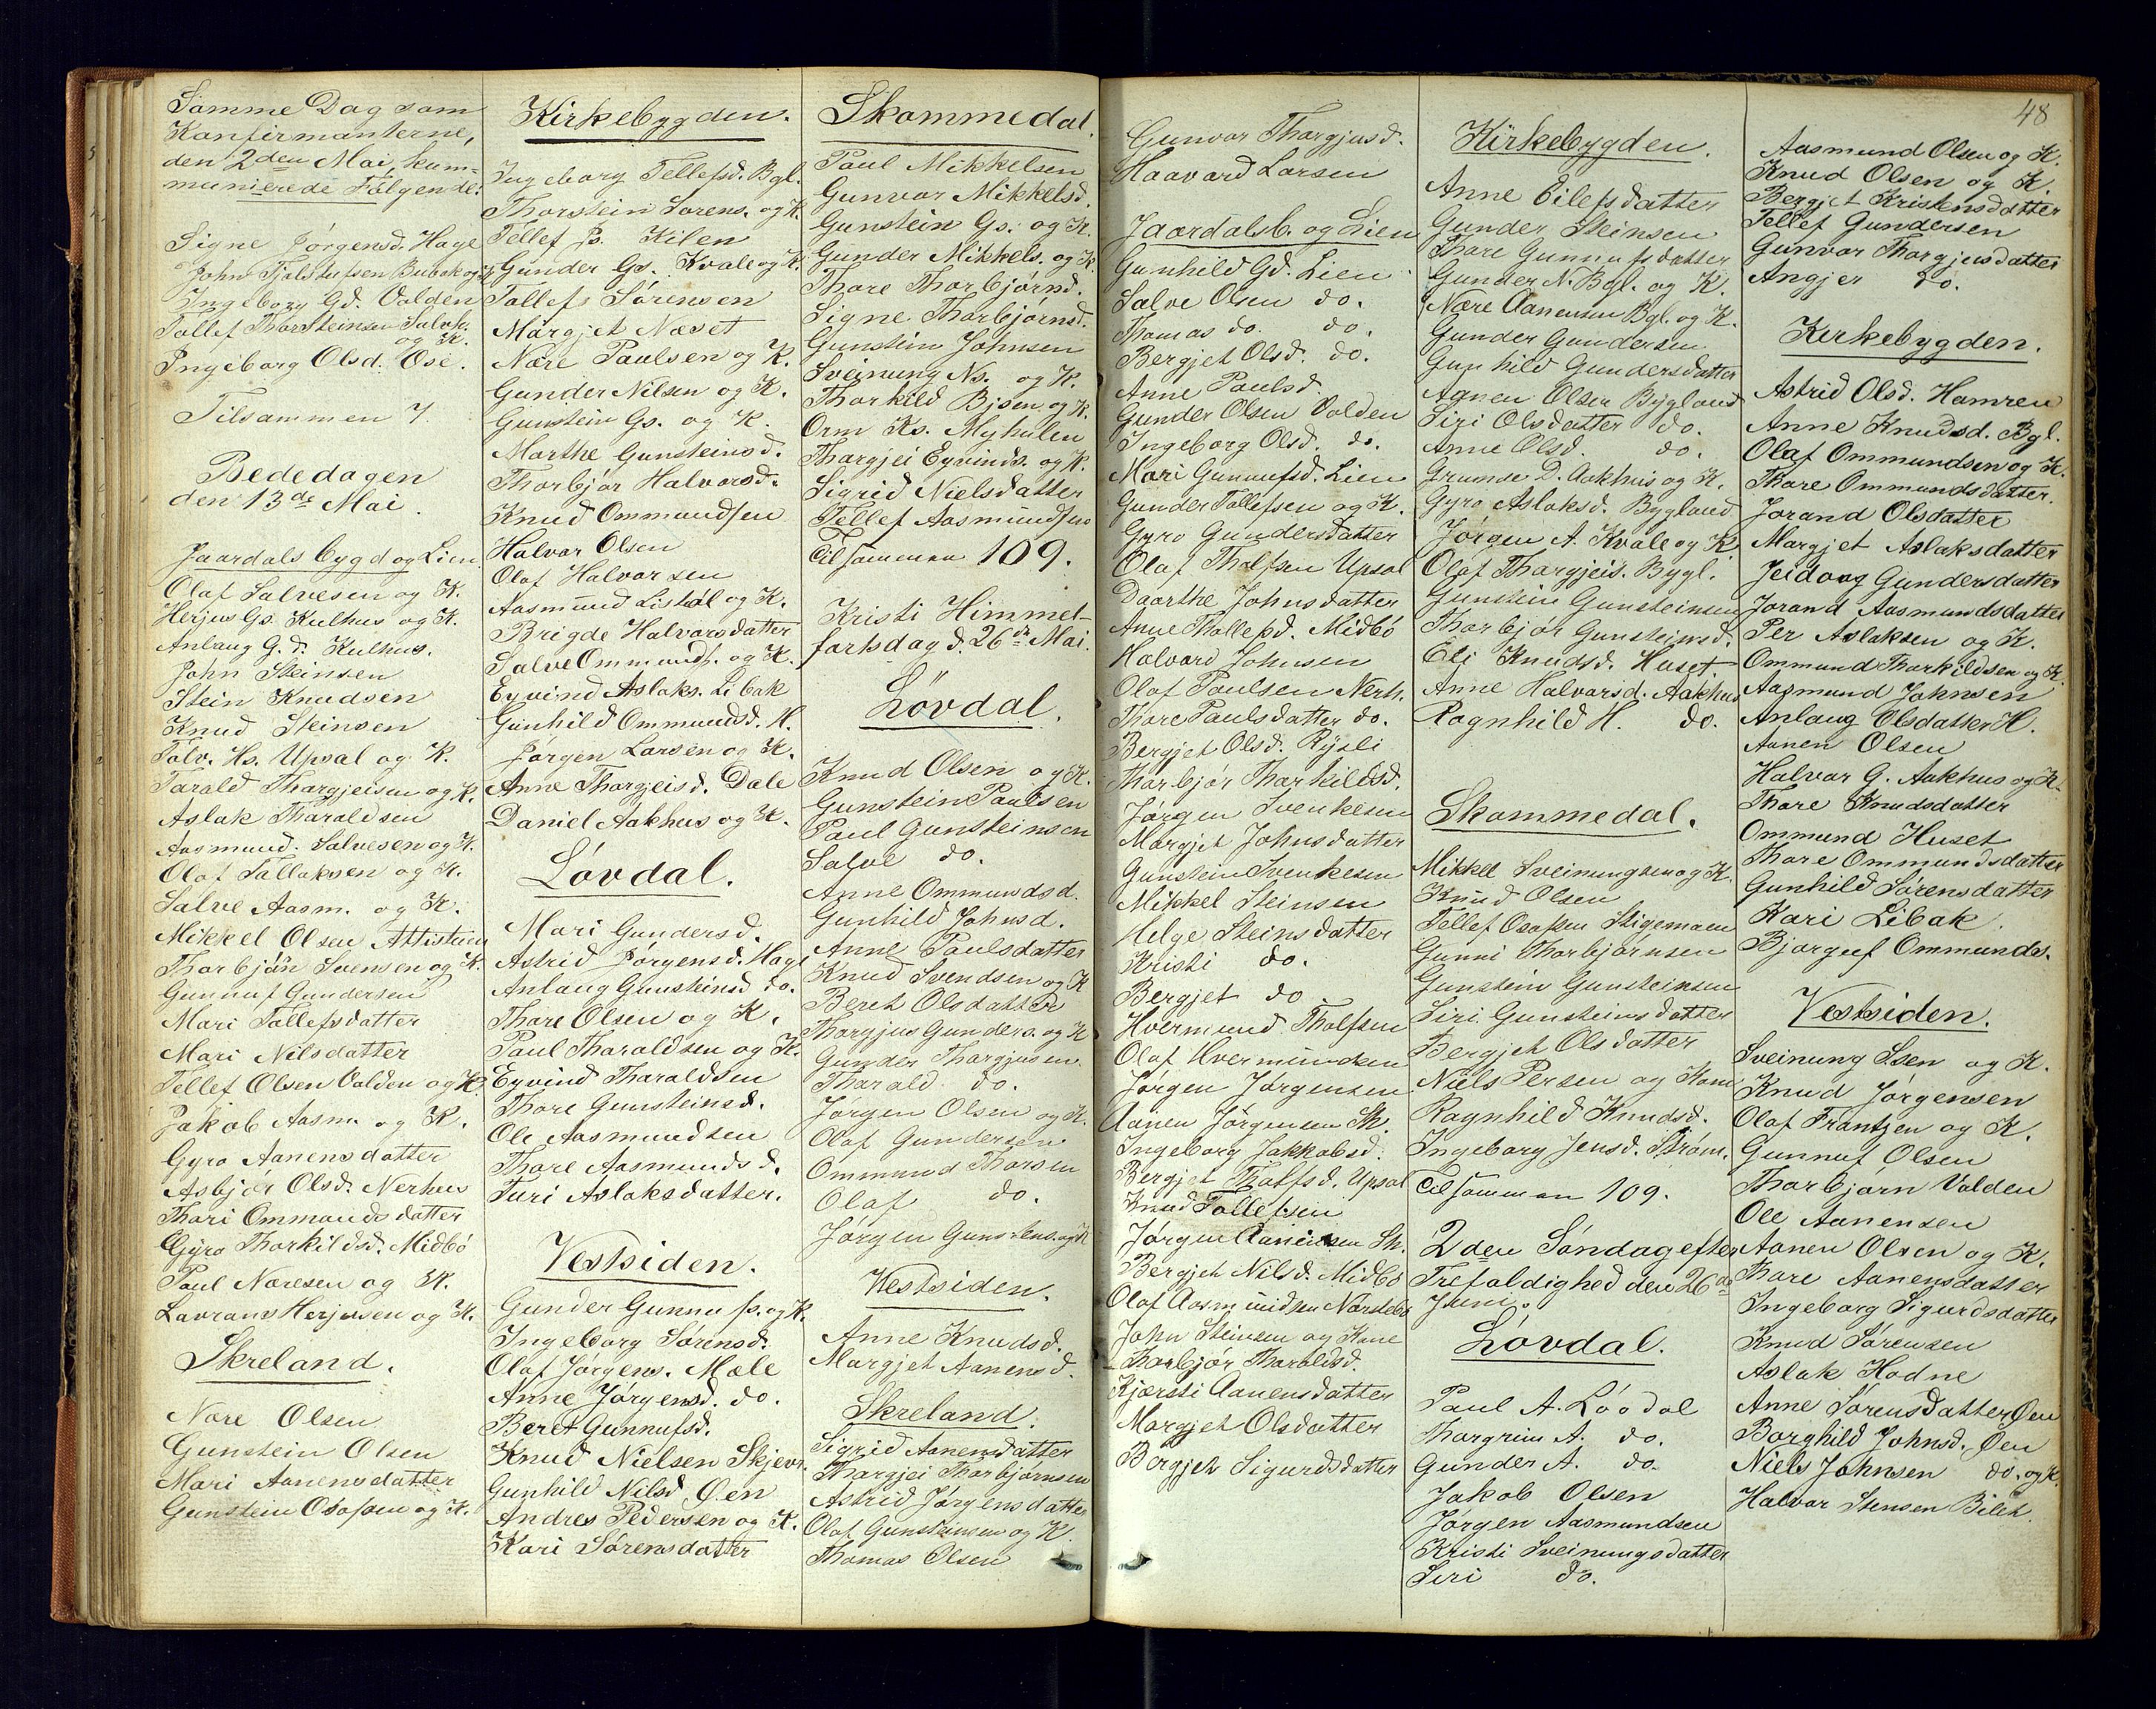 Samme Dag som
Konfirmanterne,
den 2den Mai, kom=
munierede Følgende:
Signe Jørgensd. Hage
John Fjelstufsen Bubak og K.
Ingeborg Gd. Valden
Tollef Thorsteinsen
og K.
Ingeborg Olsd. Ose.
Tilsammen 7.
Bededagen
den 13de Mai.
Jaardalsbygd og Lien.
Olaf Salvesen og K.
Herjus Gs. Kulhus og K.
Anlaug G.d. Kulhus.
John Steinsen
Stein Knudsen
Knud Steinsen
Tolv. Hs. Upsal og K.
Tarald Thargjeisen og K.
Aslak Tharaldsen
Aasmund. Salvesen og K.
Olaf Tallaksen og K.
Salve Aasm. og K.
Mikkel Olsen Attistuen
Thorbjørn Svensen og K.
Gunnuf Gundersen
Mari Tollefsdatter
Mari Nilsdatter
Tellef Olsen Valden og K.
Jakob Aasm. og K.
Gyro Aanensdatter
Asbjør Olsd. Nerhus
Thari Ommundsdatter
Gyro Thorkildsd. Midbø
Paul Naresen og K.
Lavrans Herjusen og K.
Skreland.
Nare Olsen
Gunstein Olsen
Mari Aanensdatter
Gunstein Osafsen og K.
Kirkebygden.
Ingeborg Tellefsd. Bgl.
Thorstein Sørens. og K.
Tellef Js. Kilen
Gunder Gs. Kvale og K.
Tollef Sørensen
Margjet Næset
Nare Paulsen og K.
Gunder Nilsen og K.
Gunstein Gs. og K.
Marthe Gunsteinsd.
Thorbjør Halvorsd.
Knud Ommundsen
Halvor Olsen
Olaf Halvorsen
Aasmund Lisbøl og K.
Brigde Halvorsdatter
Salve Ommunds. og K.
Eyvind Aslaks. Libak
Gunhild Ommundsd. H.
Jørgen Larsen og K.
Anne Thargjeisd. Dale
Daniel Aakhus og K.
Løvdal.
Mari Gundersd.
Astrid Jørgensd. Hage
Anlaug Gunsteinsd do.
Thore Olsen og K.
Paul Tharaldsen og K.
Eyvind Tharaldsen
Thore Gunsteinsd.
Ole Aasmundsen
Thore Aasmundsd.
Turi Aslaksdatter.
Vestsiden.
Gunder Gunnufs. og K.
Ingeborg Sørensd.
Olaf Jørgens. Mæle
Anne Jørgensd. do.
Beret Gunnufsd.
Knud Nielsen Skjevr.
Gunhild Nilsd Øen
Andres Pedersen og K.
Kari Sørensdatter
Skommedal.
Paul Mikkelsen
Gunvor Mikkelsd.
Gunstein Gs. og K.
Gunder Mikkels. og K.
Thore Thorbjørnd.
Signe Thorbjørnsd.
Gunstein Johnsen
Sveinung Ns. og K.
Thorkild Bjsen og K.
Orm Ks. Myhulen
Thargjei Eyvinds. og K.
Sigrid Nielsdatter
Tellef Aasmundsen
Tilsammen 109.
Kristi Himmel-
fartsdag d. 26de Mai.
Løvdal.
Knud Olsen og K.
Gunstein Paulsen
Paul Gunsteinsen
Salve do.
Anne Ommundsd.
Gunhild Johnsd.
Anne Paulsdatter
Knud Svendsen og K
Beret Olsdatter
Thorgjus Gunders. og K
Gunder Thorgjusen.
Tharald do.
Jørgen Olsen og K.
Olaf Gundersen
Ommund Thorsen
Olaf do.
Jørgen Gunstens. og K
Vestsiden.
Anne Knudsd.
Margjet Aanensd.
Skreland.
Sigrid Aanensdatter
Thargjei Thorbjørnsen
Astrid Jørgensdatter
Olaf Gunsteinsen og K.
Thomas Olsen
48
Gunvor Thorgjusd.
Haavard Larsen
Jaardalsb. og Lien
Gunhild Gd. Lien
Salve Olsen do.
Thomas do. do.
Bergjet Olsd. do.
Anne Paulsd.
Gunder Olsen Valden
Ingeborg Olsd. do.
Mari Gunnufsd. Lien
Gunder Tollefsen og K.
Gyro Gundersdatter
Olaf Tholfsen Upsal
Daarthe Johnsdatter
Anne Tollefsd. Midbø
Halvard Johnsen
Olaf Paulsen Nerh.
Thore Paulsdatter do.
Bergjet Olsd. Rysli
Thorbjør Thorkildsd.
Jørgen Svenkesen
Margjet Johnsdatter
Gunstein Svenkesen
Mikkel Steinsen
Helge Steinsdatter
Kristi do.
Bergjet do.
Hvermund Tholfsen
Olaf Hvermundsen
Jørgen Jørgensen
Aanen Jørgensen Sk.
Ingeborg Jakkobsd.
Bergjet Tholfsd. Upsal
Knud Tollefsen
Jørgen Aanensen Sk.
Bergjet Nilsd. Midbø
Olaf Aasmundsen Nørstebø
John Steinsen og Kone
Thorbjør Tharaldsd.
Kjersti Aanensdatter
Margjet Olsdatter
Bergjet Sigurdsdatter
Kirkebygden.
Anne Eilefsdatter
Gunder Steinsen
Thore Gunnufsdatter
Gunder N. Bgl. og K.
Nare Aanensen Bgl. og K.
Gunder Gundersen
Gunhild Gundersdatter
Agnen Olsen Bygland
Siri Olsdatter do.
Anne Olsd. do.
Grunde D. Aakhus og K.
Gyro Aslaksd. Bygland
Jørgen A. Kvale og K
Olaf Thargjeis. Bygl.
Gunstein Gunsteinsen
Thorbjør Gunsteinsd.
Eli Knudsd. Huset
Anne Halvorsd. Aakhus
Ragnhild H. do.
Skommedal.
Mikkel Sveinungsen og K.
Knud Olsen
Tellef Osafsen Stigemoen
Gunni Thorbjørnsen
Gunstein Gunsteinsen
Siri Gunsteinsdatter
Bergjet Olsdatter
Niels Persen og Kone
Ragnhild Knudsd.
Ingeborg Jensd. Strøm.
Tilsammen 109.
2den Søndag efter
Trefoldighed den 26de
Juni.
Løvdal.
Paul A. Løvdal
Thorgrim A. do.
Gunder A. do.
Jakob Olsen
Jørgen Aasmundsen
Kristi Sveinungsdatter
Siri do.
Aasmund Olsen og K.
Knud Olsen og K.
Bergjet Kristensdatter
Tellef Gundersen
Gunvor Thorgjusdatter
Angjer do.
Kirkebygden.
Astrid Olsd. Hamren
Anne Knudsd. Bgl.
Olaf Ommundsen og K.
Thore Ommundsdatter.
Jorand Olsdatter
Margjet Aslaksdatter
Jeidong Gundersdatter
Jorand Aasmundsdatter
Per Aslaksen og K.
Ommund Thorkildsen og K.
Aasmund Johnsen
Anlaug Olsdatter H.
Aanen Olsen
Halvor G. Aakhus og K.
Thore Knudsdatter
Ommund Huset
Thore Ommundsdatter
Gunhild Sørensdatter
Kari Libak.
Bjorguf Ommunds.
Vestsiden.
Sveinung Ssen og K.
Knud Jørgensen
Olaf Frantzen og K.
Gunnuf Olsen
Thorbjørn Valden
Ole Aanensen
Aanen Olsen og K.
Thore Aanensdatter
Ingeborg Sigurdsdatter
Knud Sørensen
Aslak Hodne
Anne Sørensdatter Øen
Borghild Johnsd. Øen
Niels Johnsen do. og K.
Halvor Stensen Bilet.